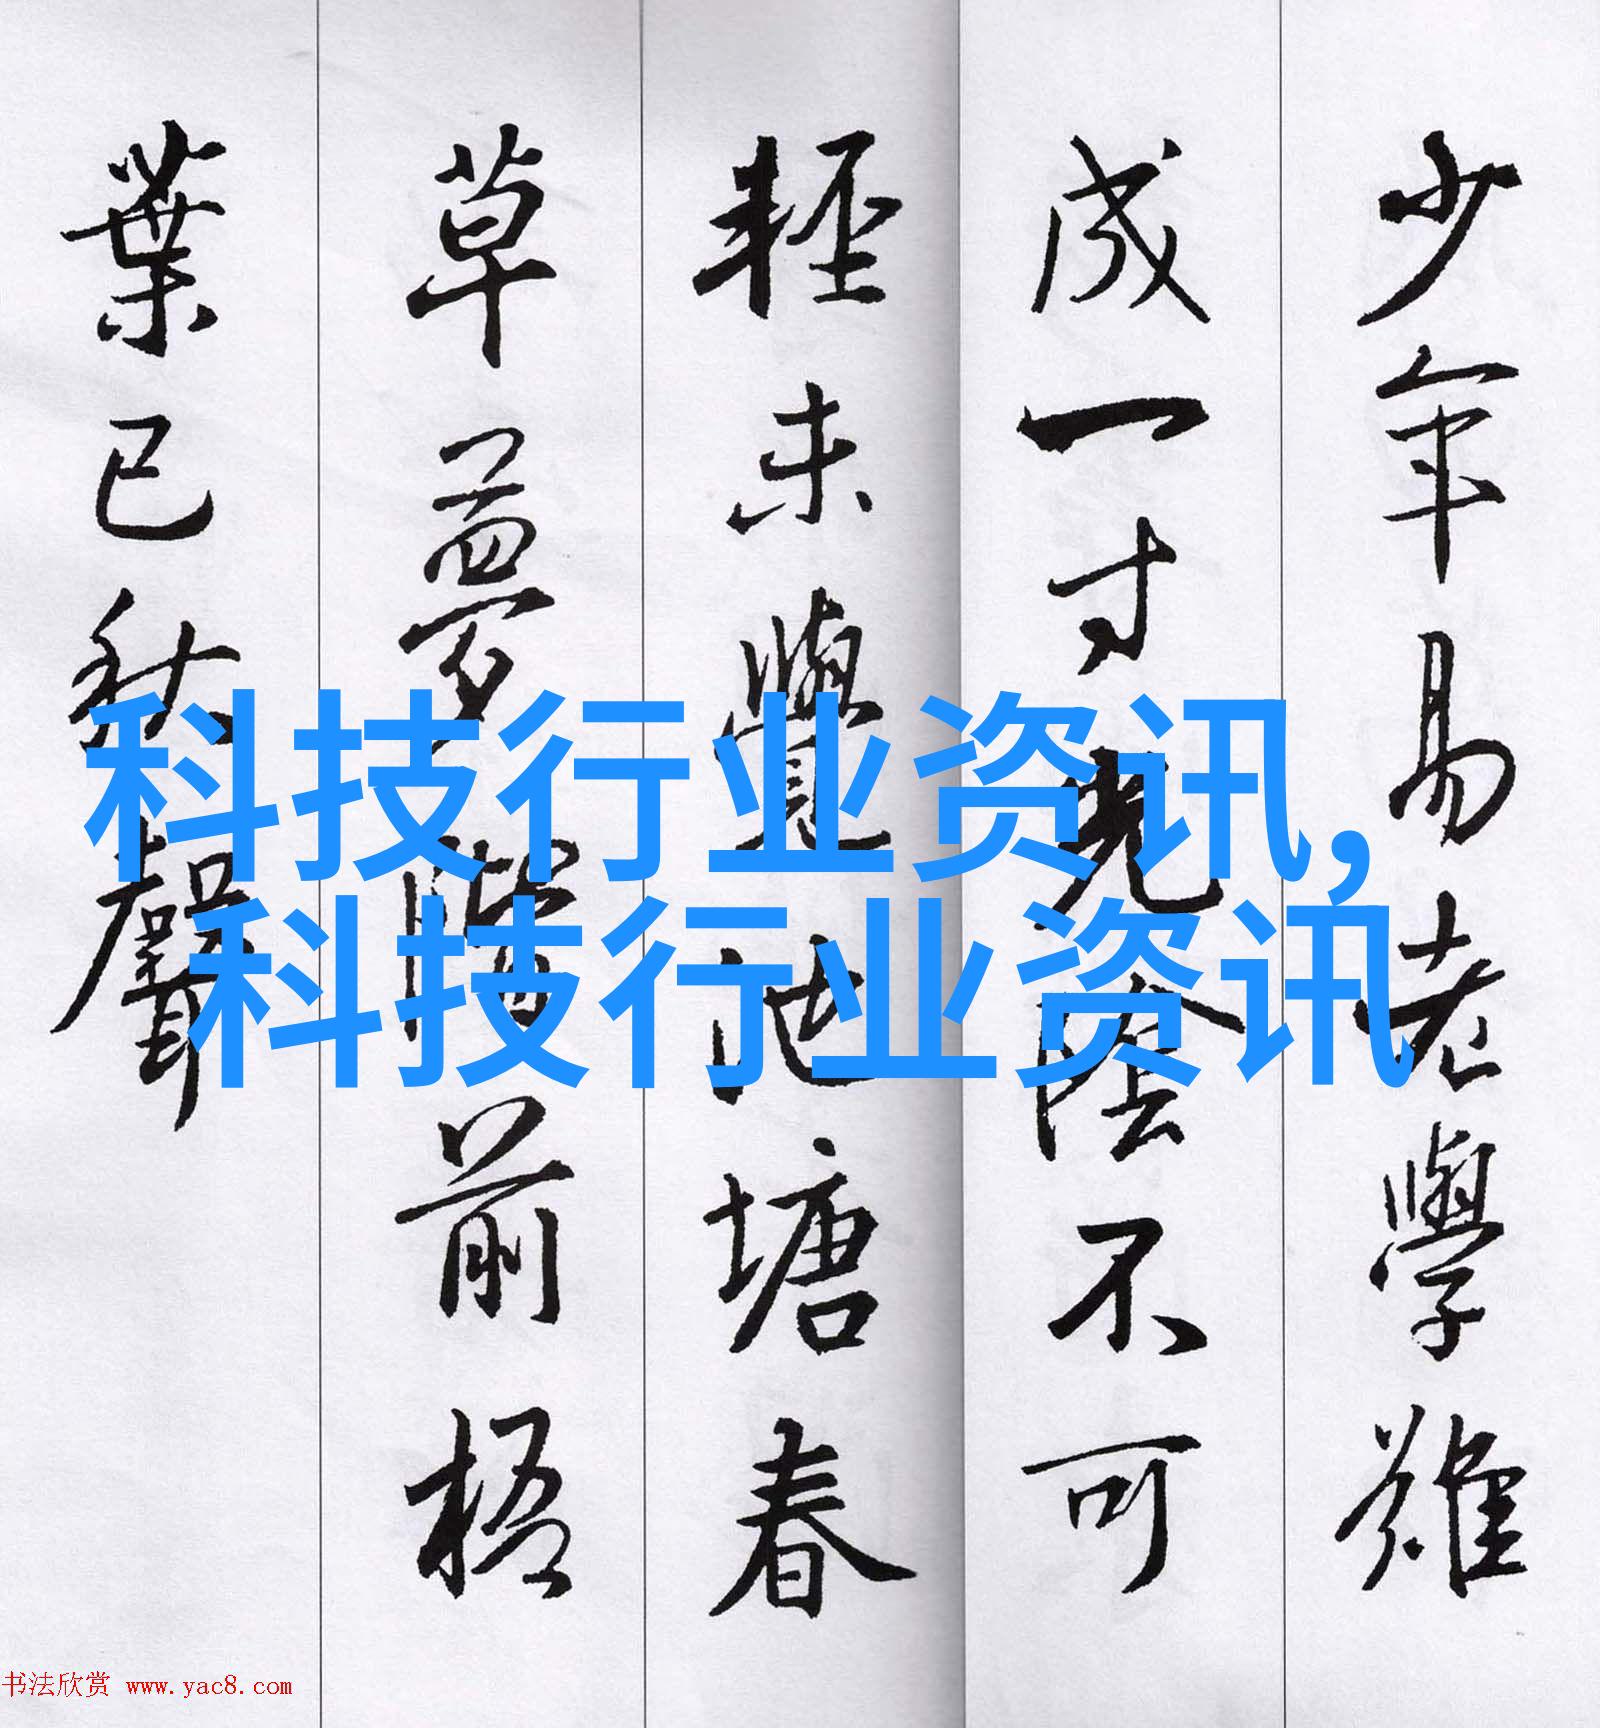 少年易老學難
成一寸光陰不可
輕未覺池塘春
草夢階前梧
葉已秋聲
科技行业资讯,
科技行业资讯
书法欣赏 www.yac8.com